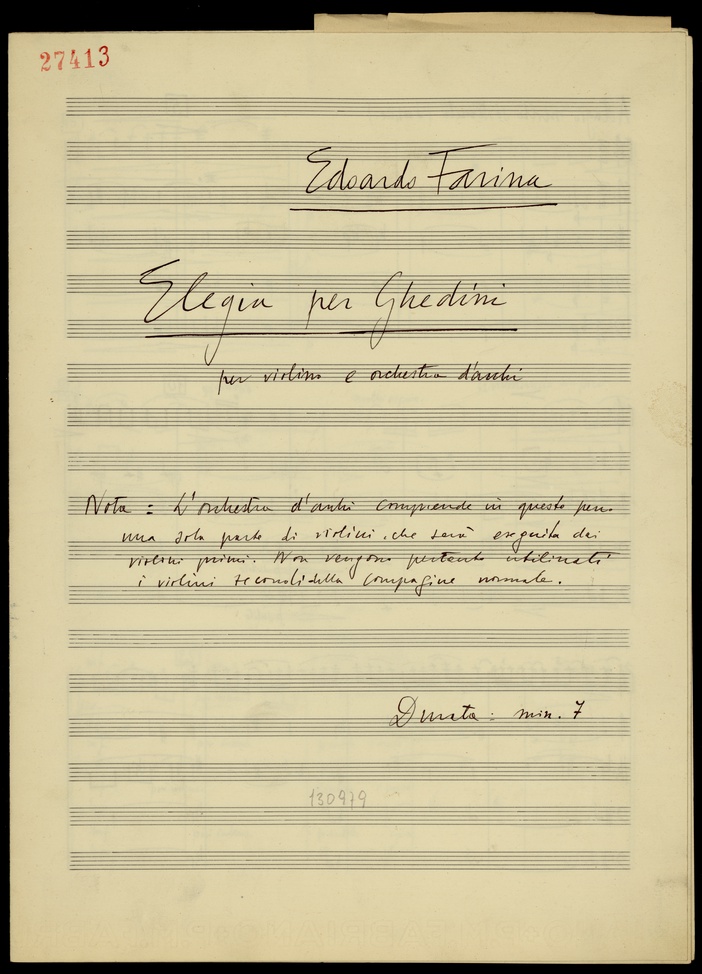 27413
Edoardo Farina
Elegia per Ghedini
per violino e orchestra d'archi
Nota = L'orchestra d'archi comprende in questo pezzo
una sola parte di violini, che sarà eseguita dai
violini primi. Non vengono pertanto utilizzati
i violini secondi della compagine normale.
Durata : min. 7
130979